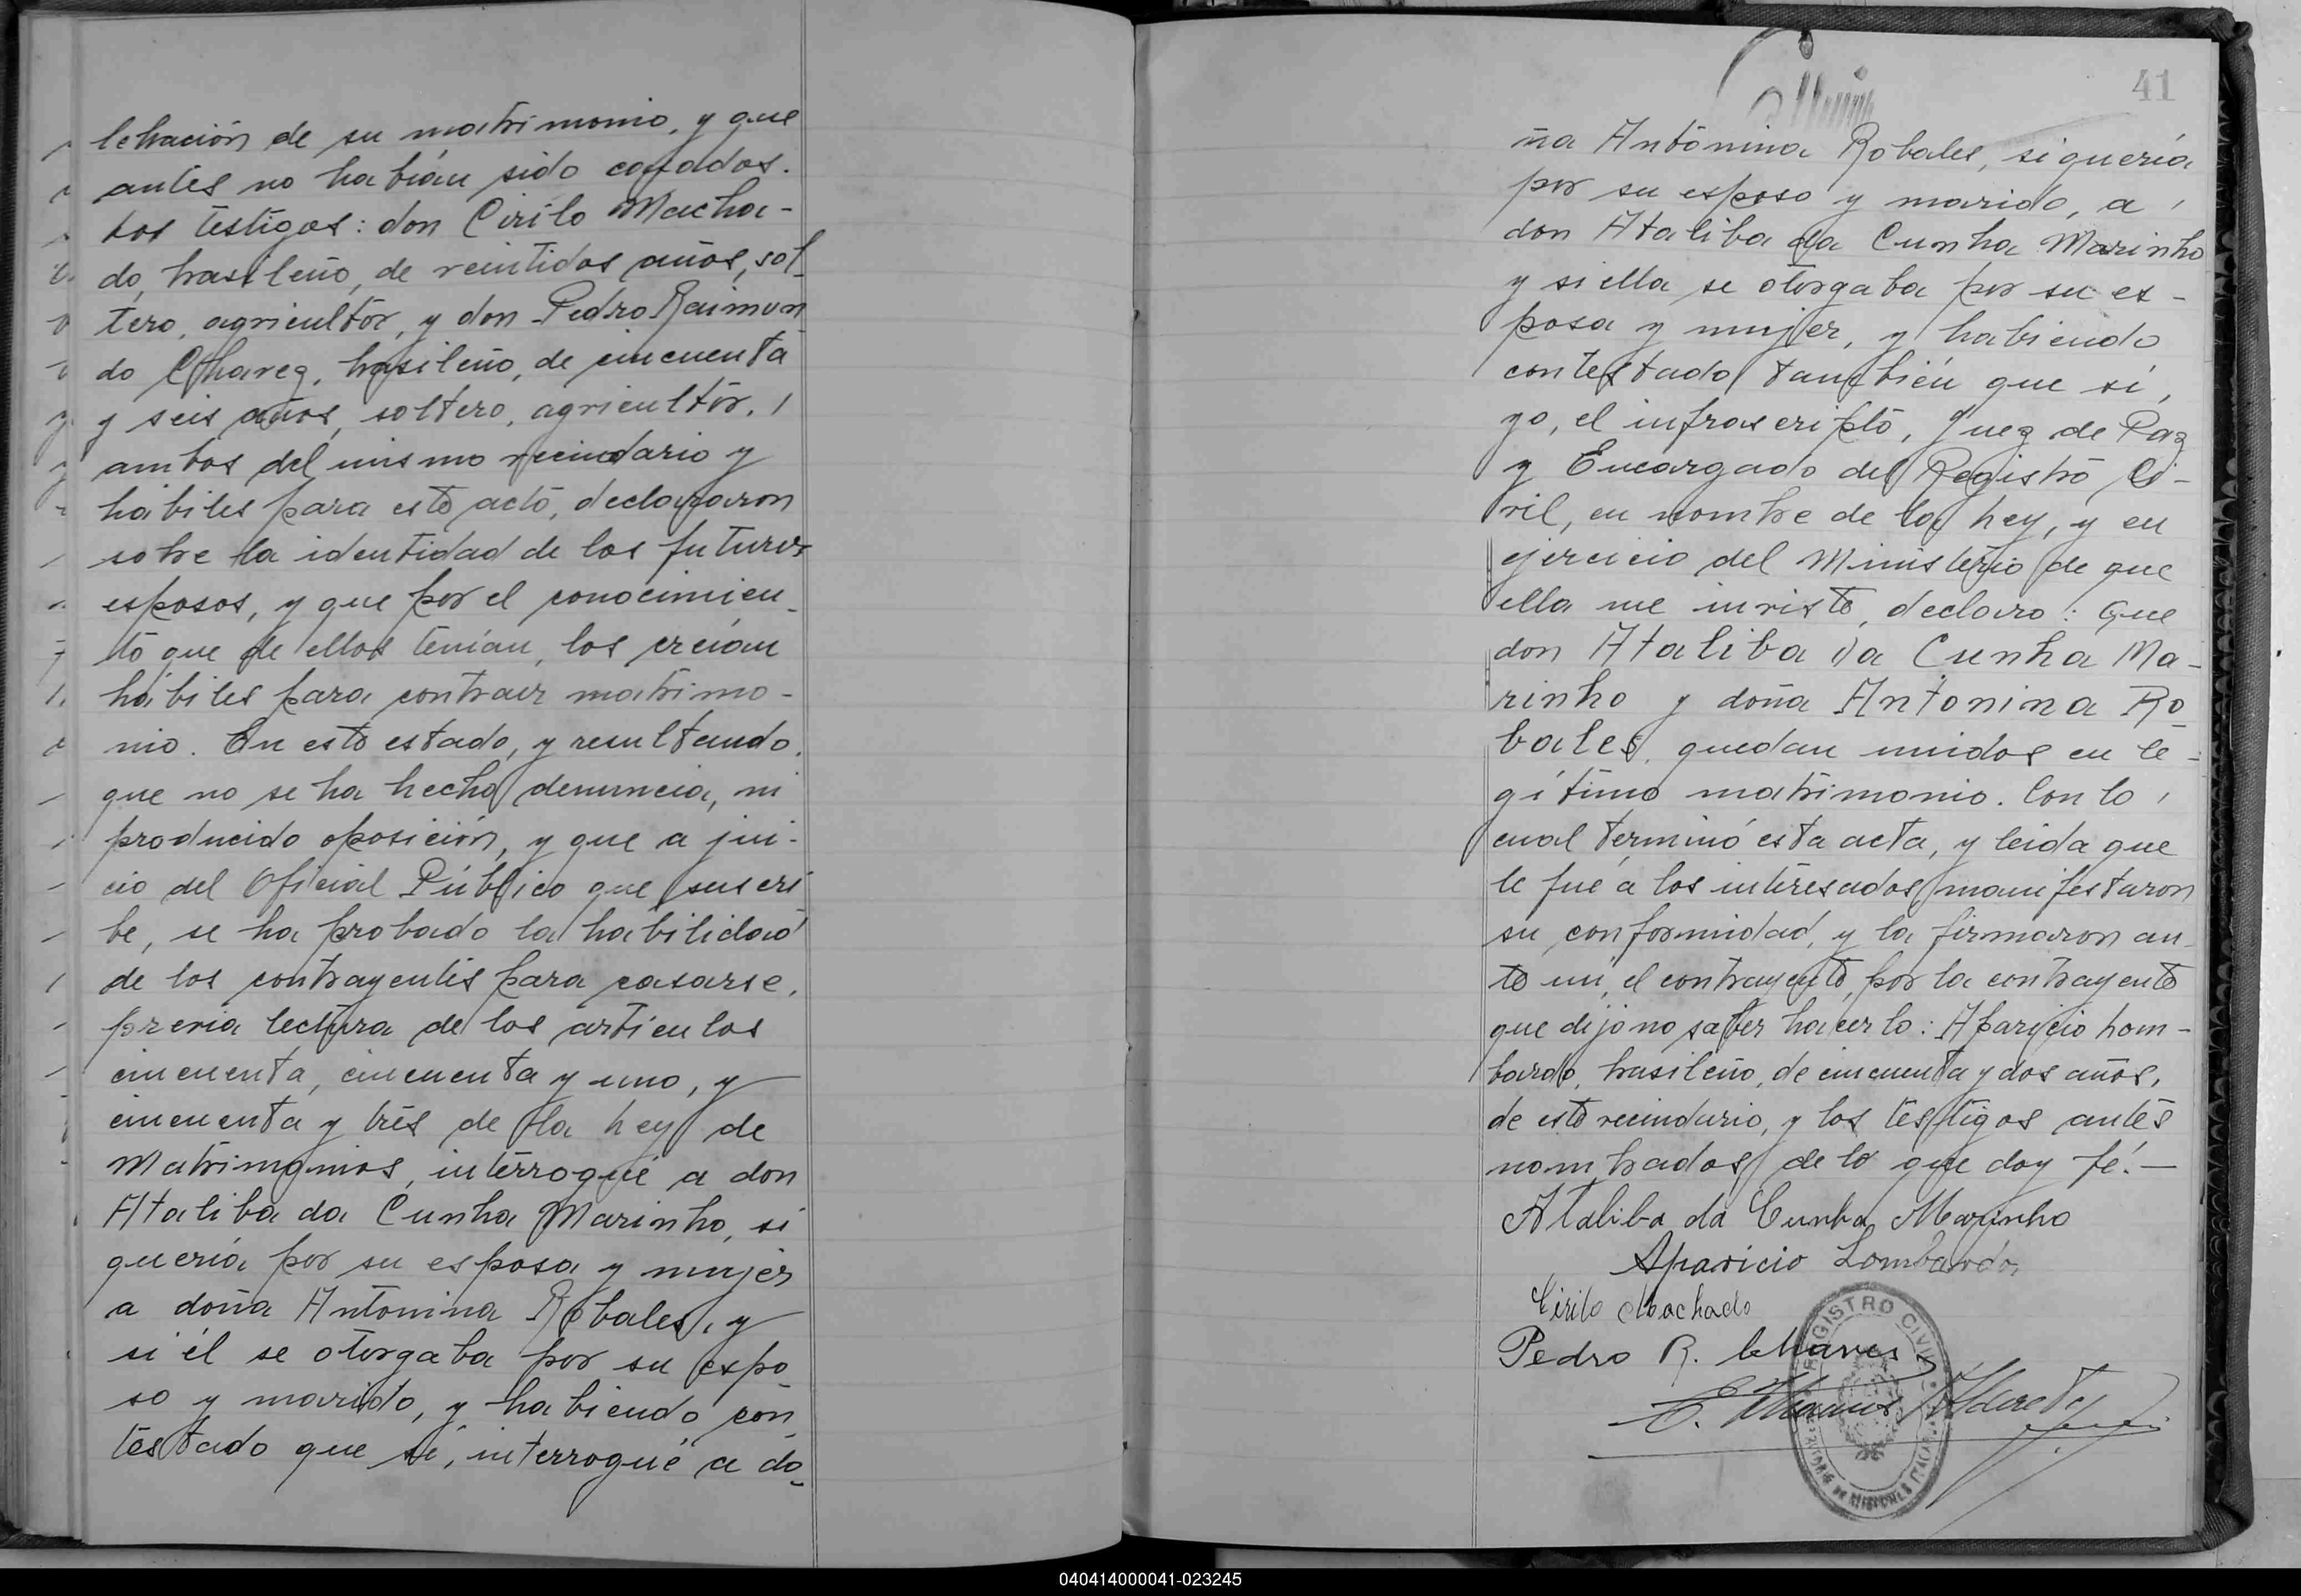 lebración de su matrimonio, y que
antes no habían sido casados.
Los testigos: don Cirilo Macha-
do, brasileño, de veintidos años, sol-
tero, agricultor, y don Pedro Raimun
do Chavez, brasileño, de cincuenta
y seis años, soltero, agricultor,
ambos del mismo vecindario y
hábiles para este acto, declararon
sobre la identidad de los futuros
esposos, y que por el conocimien-
to que de ellos tenían, los creían
hábiles para contraer matrimo-
nio. En este estado, y resultando,
que no se ha hecho denuncia, ni
producido oposición, y que a jui-
cio del Oficial Público que suscri
be, se ha probado la habilidad
de los contrayentes para casarse,
previa lectura de los artículos
cincuenta, cincuenta y uno, y
cincuenta y tres de la Ley de
Matrimonios, interrogué a don
Ataliba da Cunha Marinho, si
quería por su esposa y mujer
a doña Antonina Robales, y
si él se otorgaba por su espo-
so y marido, y habiendo con-
testado que sí, interrogué a do-
41
ña Antonina Robales, si quería
por su esposo y marido, a
don Ataliba da Cunha Marinho
y si ella se otorgaba por su es-
posa y mujer, y habiendo
contestado también que sí,
yo, el infrascripto, Juez de Paz
y Encargado del Registro Ci-
vil, en nombre de la Ley, y en
ejercicio del Ministerio de que
ella me inviste, declaro: Que
don Ataliba da Cunha Ma-
rinho y doña Antonina Ro-
bales, quedan unidos en le-
gítimo matrimonio. Con lo
cual terminó esta acta, y leída que
le fué a los interesados manifestaron
su conformidad, y la firmaron an-
te mí, el contrayente, por la contrayente
que dijo no saber hacerlo: Aparicio Lom-
bardo, brasileño, de cincuenta y dos años,
de este vecindario, y los testigos antes
nombrados de lo que doy fé.—
Ataliba da Cunha Marinho
Aparicio Lombardo
Cirilo Machado
Pedro R. Chaves
REGISTRO CIVIL
DE MISIONES
040414000041-023245